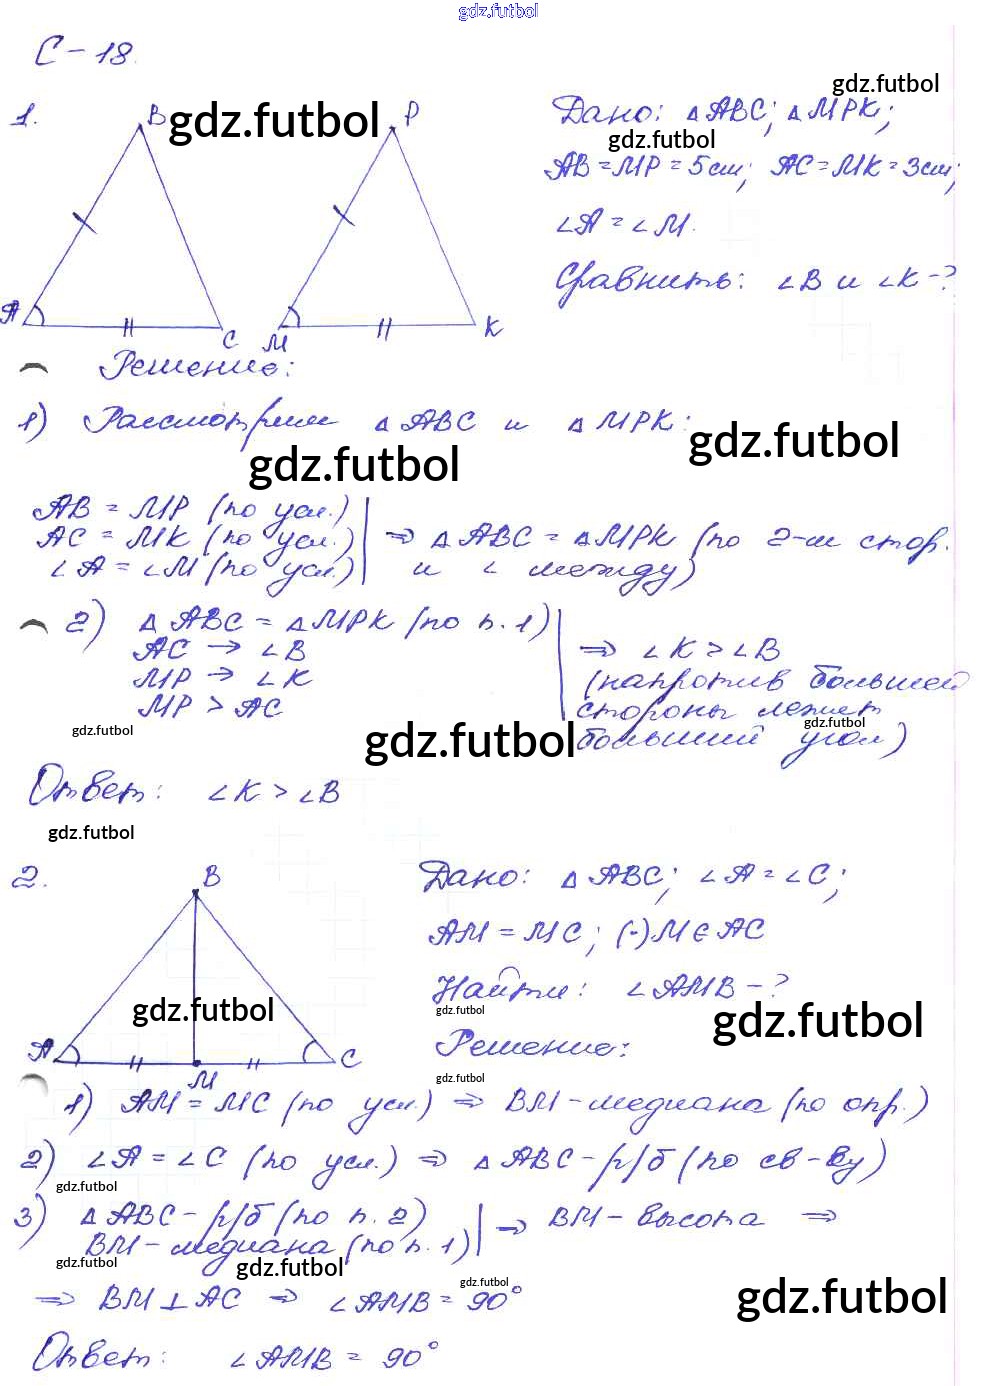 gdz.futbol
С-18.
gdz.futbol
1.
B
gdz.futbol
P
Дано: △ABC; △MPK;
gdz.futbol
AB = MP = 5см; AC = MK = 3см;
∠A = ∠M.
Сравнить: ∠B и ∠K -?
A
C
M
K
Решение:
1) Рассмотрим △ABC и △MPK:
gdz.futbol
gdz.futbol
AB = MP (по усл.)
AC = MK (по усл.) ⇒ △ABC = △MPK (по 2-м стор.
∠A = ∠M (по усл.) и ∠ между)
2) △ABC = △MPK (по п. 1)
AC → ∠B ⇒ ∠K > ∠B
MP → ∠K (напротив большей
MP > AC стороны лежит
gdz.futbol
gdz.futbol
gdz.futbol
больший угол)
Ответ: ∠K > ∠B
gdz.futbol
2.
B
Дано: △ABC; ∠A = ∠C;
AM = MC; (·)M ∈ AC
Найти: ∠AMB -?
gdz.futbol
gdz.futbol
gdz.futbol
Решение:
A
M
C
gdz.futbol
1) AM = MC (по усл.) ⇒ BM - медиана (по опр.)
2) ∠A = ∠C (по усл.) ⇒ △ABC - р/б (по св-ву)
gdz.futbol
3) △ABC - р/б (по п. 2) ⇒ BM - высота ⇒
BM - медиана (по п. 1)
gdz.futbol
gdz.futbol
gdz.futbol
gdz.futbol
⇒ BM ⊥ AC ⇒ ∠AMB = 90°
Ответ: ∠AMB = 90°